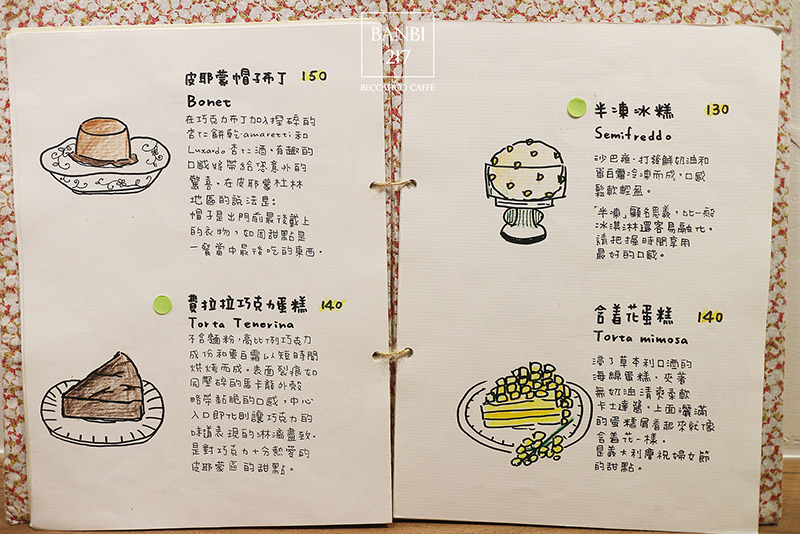 BANBI
217
BECCAFICO CAFFÈ
皮耶蒙帽子布丁 150
Bonet
在巧克力布丁加入捏碎的
杏仁餅乾amaretti和
Luxardo杏仁酒,有趣的
口感將帶給您意外的
驚喜。在皮耶蒙杜林
地區的說法是:
帽子是出門前最後戴上
的衣物,如同甜點是
一餐當中最後吃的東西。
費拉拉巧克力蛋糕 140
Torta Tenerina
不含麵粉,高比例巧克力
成份和蛋白霜以短時間
烘烤而成。表面裂痕如
同壓碎的馬卡龍外殼
略帶黏脆的口感,中心
入口即化則讓巧克力的
味道表現的淋漓盡致。
是對巧克力十分熱愛的
皮耶蒙區的甜點。
半凍冰糕 130
Semifreddo
沙巴雍、打發鮮奶油和
蛋白霜冷凍而成,口感
鬆軟輕盈。
「半凍」顧名思義,比一般
冰淇淋還容易融化,
請把握時間享用
最好的口感。
含羞花蛋糕 140
Torta mimosa
浸了草本利口酒的
海綿蛋糕,夾著
無奶油清爽柔軟
卡士達醬,上面灑滿
的蛋糕屑看起來就像
含羞花一樣。
是義大利慶祝婦女節
的甜點。